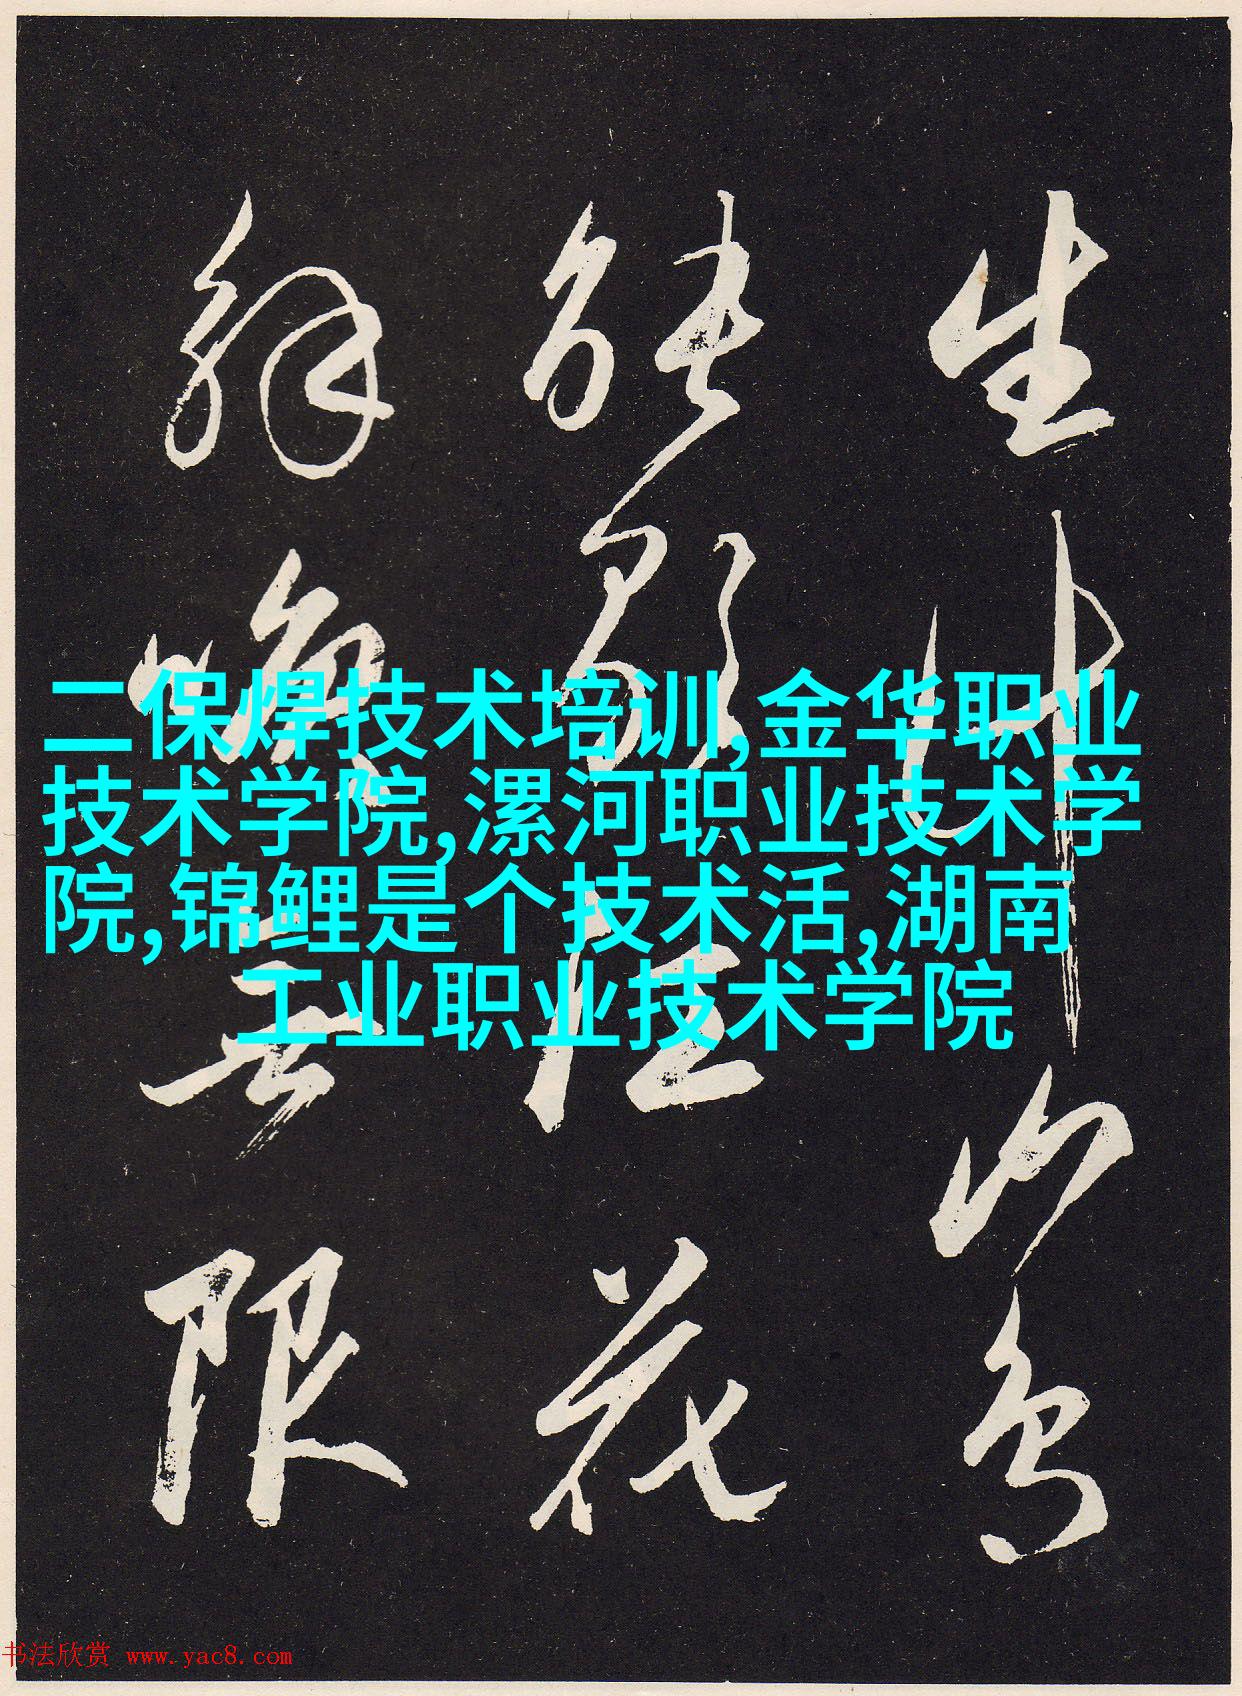 二保焊技术培训,金华职业
技术学院,漯河职业技术学
院,锦鲤是个技术活,湖南
工业职业技术学院
生山鸟
能歌花
解限
书法欣赏 www.yac8.com